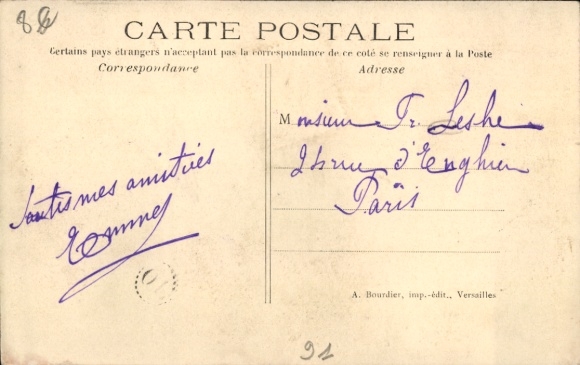 CARTE POSTALE
Certains pays étrangers n'acceptant pas la correspondance de ce coté se renseigner à la Poste
Correspondance
Adresse
Monsieur Fr. Leshe
rue d'Enghien
Paris
Toutes mes amitiés
A. Bourdier, imp.-édit., Versailles
91